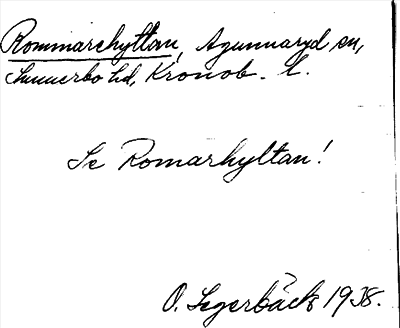 Rommarehyltan, Agunnaryd sn,
Sunnerbo hd, Kronob. l.
Se Romarhyltan!
O. Segerbäck 1938.